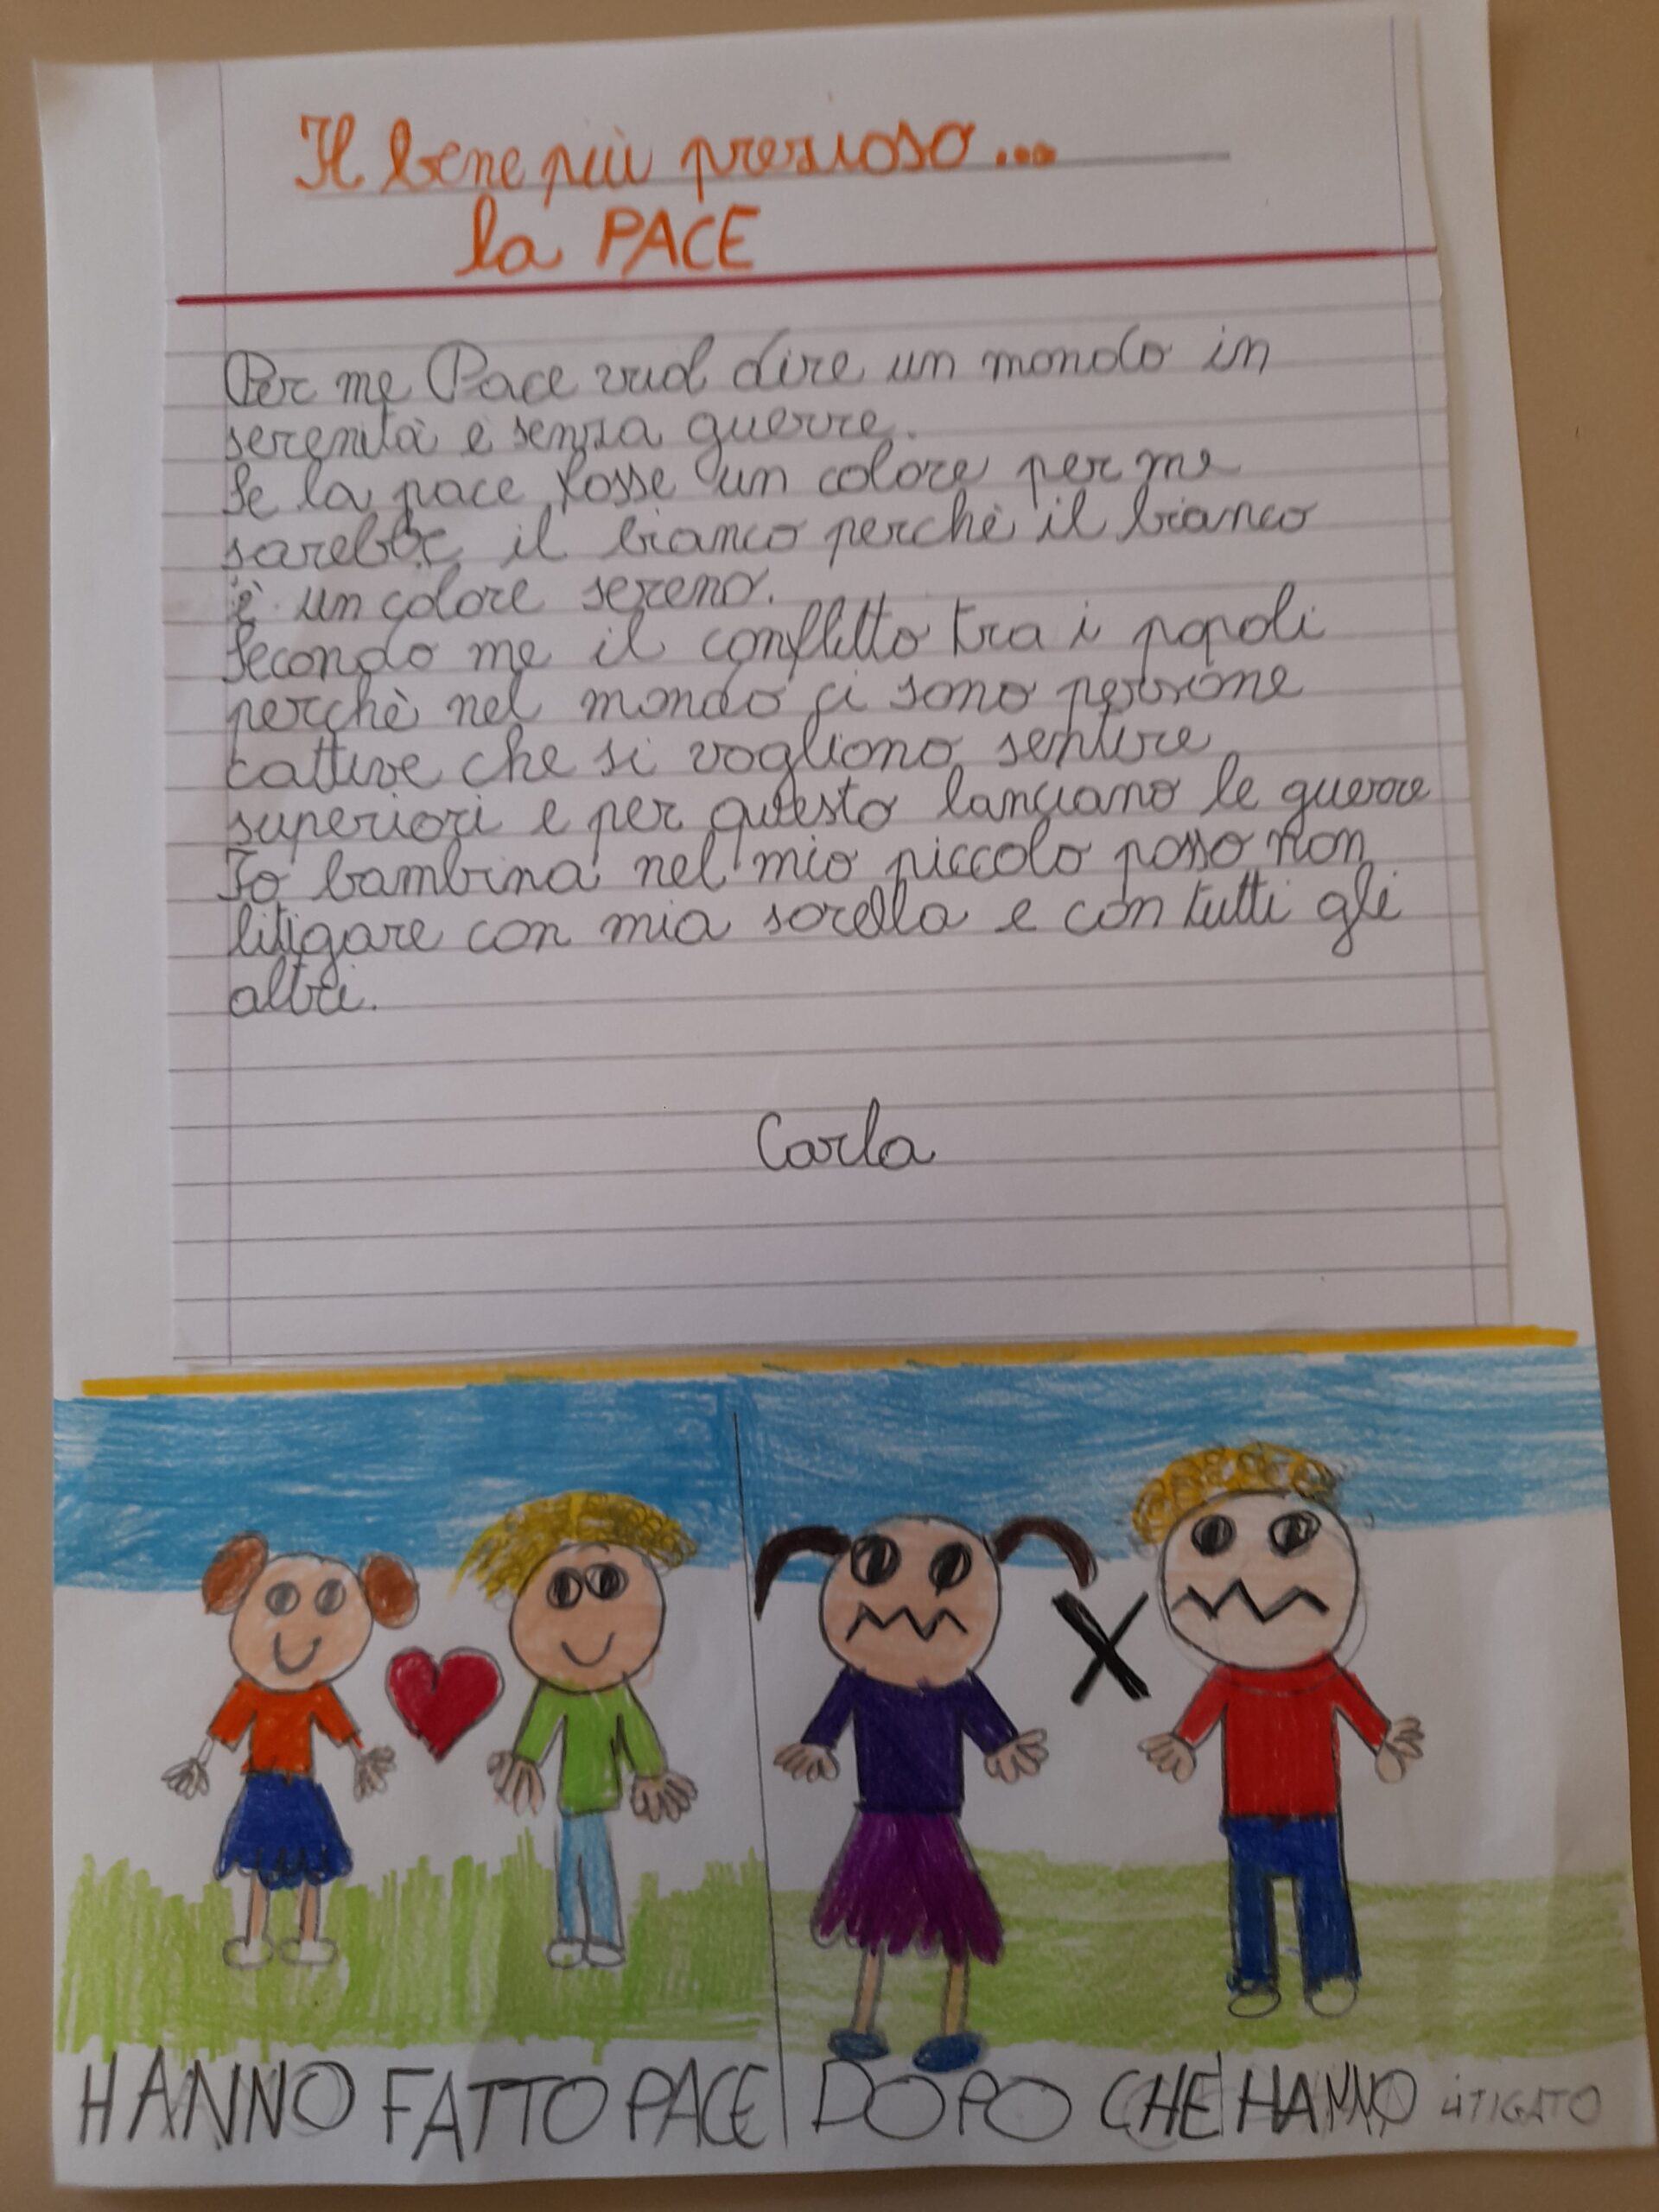 Il bene più prezioso...
la PACE
Per me Pace vuol dire un mondo in
serenità e senza guerre.
Se la pace fosse un colore per me
sarebbe il bianco perchè il bianco
è un colore sereno.
Secondo me il conflitto tra i popoli
perchè nel mondo ci sono persone
cattive che si vogliono sentire
superiori e per questo lanciano le guerre
Io bambina nel mio piccolo posso non
litigare con mia sorella e con tutti gli
altri.
Carla
HANNO FATTO PACE DOPO CHE HANNO LITIGATO